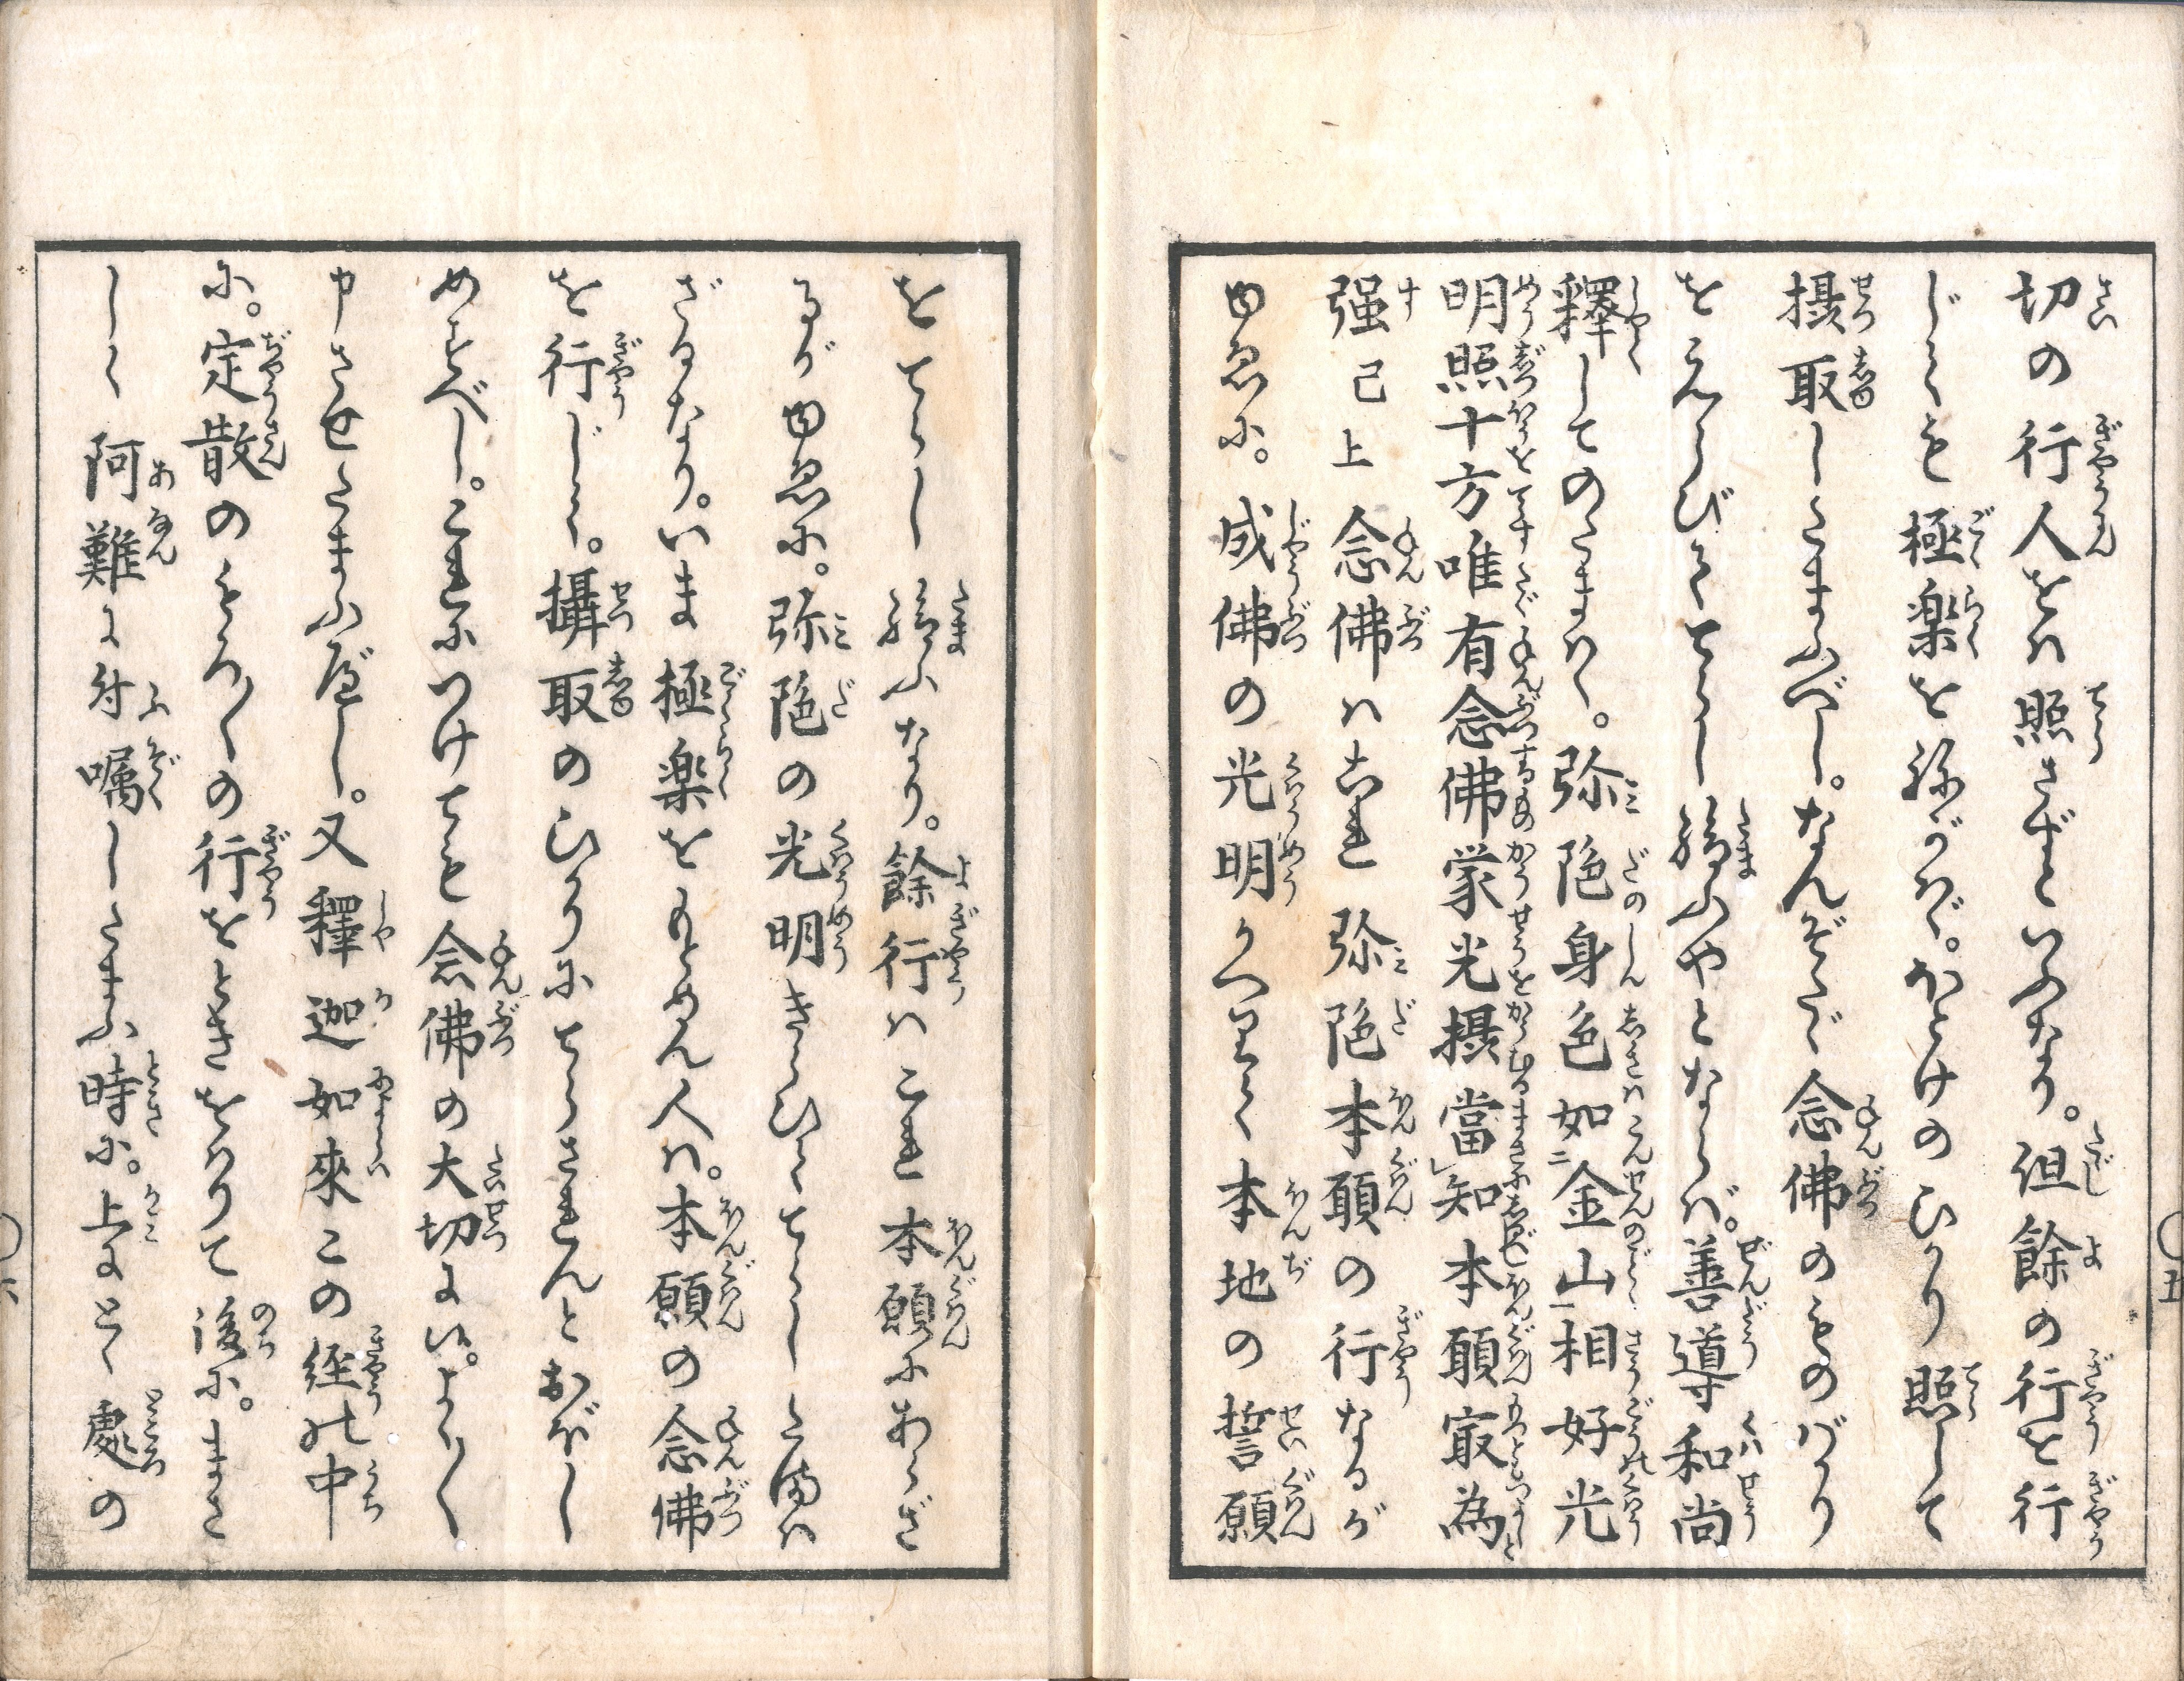 切の行人をハ照さずといふなり。但餘の行を行
じても極楽をねがハヾ。ほとけのひかり照して
摂取したまふべし。なんぞたゞ念佛のものばかり
をえらびててらし給ふやとならバ。善導和尚
釋してのたまハく。弥陁身色如金山相好光
明照十方唯有念佛蒙光摂當知本願㝡為
强已上念佛ハこれ弥陁本願の行なるが
ゆゑに。成佛の光明かへりて本地の誓願
をてらし給ふなり。餘行ハこれ本願にあらざ
るがゆゑに。弥陁の光明きらひててらしたまハ
ざるなり。いま極楽をもとめん人ハ。本願の念佛
を行じて。攝取のひかりにてらされんとおぼし
めすべし。これにつけても念佛の大切に候。よく〳〵
申させたまふべし。又釋迦如來この経の中
に。定散のもろ〳〵の行をときをハりて後に。まさ
しく阿難に付嘱したまふ時に。上にとく處の
五
六